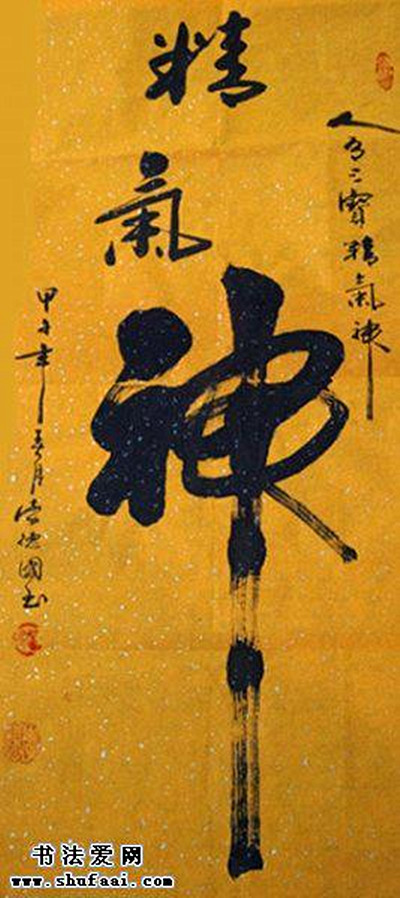 人有三寶精氣神
精氣神
甲午年春月德國书
书法爱网
www.shufaai.com